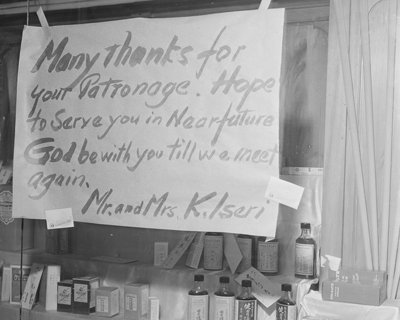 Many thanks for
your Patronage. Hope
to Serve you in Near future
God be with you till we meet
again.
Mr. and Mrs. K. Iseri